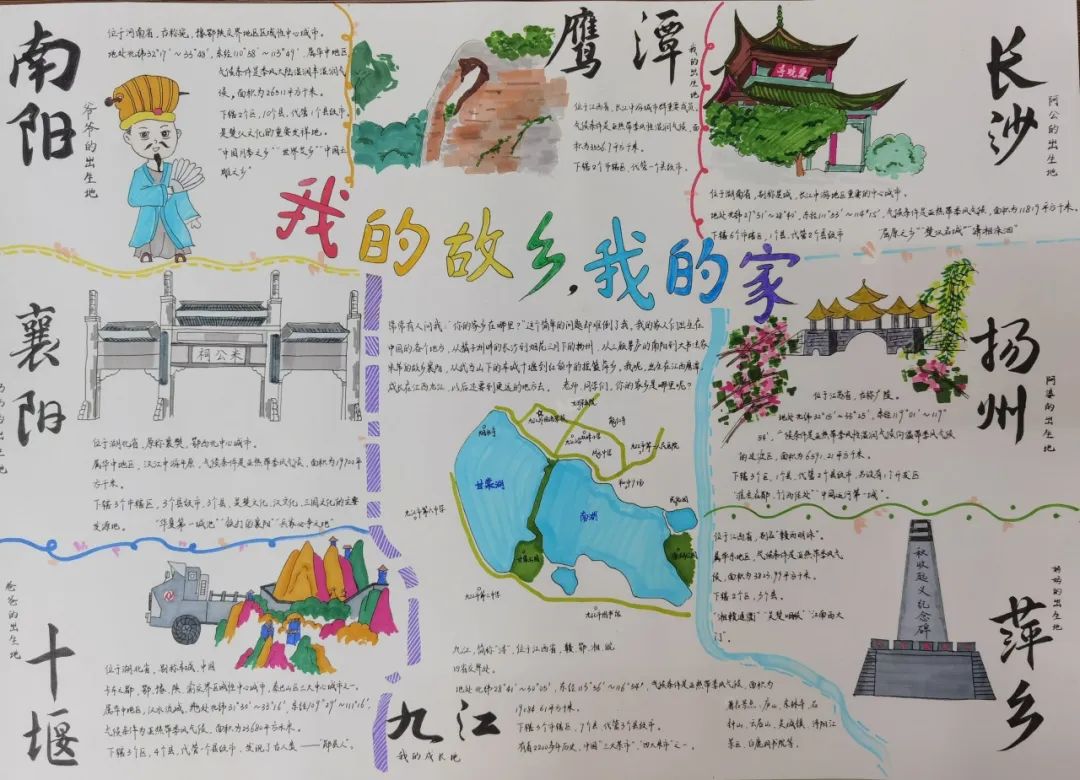 南阳
爷爷的出生地
位于河南省，古称宛，豫鄂陕交界地区区域性中心城市。
候，面积为26511平方千米。
下辖2个区，10个县，代管1个县级市，
是楚汉文化的重要发祥地。
"中国月季之乡""世界艾乡""中国玉
雕之乡"
鹰潭
我的出生地
位于江西省，长江中游城市群重要成员，
气候条件是亚热带季风性湿润气候，面
积为3556.7平方千米。
下辖2个市辖区，代管一个县级市。
长沙
阿公的出生地
爱晚亭
位于湖南省，别称星城，长江中游地区重要的中心城市。
地处北纬27°51′~28°40′，东经111°53′~114°15′，气候条件是亚热带季风气候，面积为11819平方千米。
下辖6个市辖区，1个县，代管2个县级市
"屈原之乡""楚汉名城""潇湘洙泗"
我的故乡，我的家
襄阳
米公祠
位于湖北省，原称襄樊，鄂西北中心城市。
属华中地区，汉江中游平原，气候条件是亚热带季风气候，面积为19702平
方千米。
下辖3个市辖区，3个县级市，3个县，是楚文化、汉文化、三国文化的主要
发源地。
"华夏第一城池""铁打的襄阳""兵家必争之地"
常常有人问我："你的家乡在哪里？"这个简单的问题却难倒了我，我的家人们出生在
中国的各个地方，从橘子洲畔的长沙到烟花三月下的扬州，从人杰景产的南阳到大书法家
米芾的故乡襄阳，从武当山下的车城十堰到红歌中的摇篮萍乡，我呢，出生在江西鹰潭
成长在江西九江，以后还要到更远的地方去。老师、同学们，你的家乡是哪里呢？
甘棠湖
南湖
扬州
阿婆的出生地
位于江苏省，古称广陵。
地处北纬32°15′~33°25′，东经119°01′~119°
54′，气候条件是亚热带季风性湿润气候向温带季风气候
的过渡区，面积为6591.21平方千米。
下辖3个区，1个县，代管2个县级市，另设有1个开发区
"淮左名都，竹西佳处""中国运河第一城"。
十堰
爸爸的出生地
位于湖北省，别称车城，中国
属华中地区，汉水流域，
气候条件为亚热带季风气候，面积为23680平方千米。
九江
我的成长地
九江，简称"浔"，位于江西省，赣、鄂、湘、皖
四省交界处。
地处北纬28°41′~30°05′，东经113°56′~116°54′，气候条件是亚热带季风气候，面积为
19084.61平方千米。
下辖3个市辖区，7个县，代管3个县级市。
有着2200多年历史，中国"三大茶市"、"四大米市"之一。
著名景点：庐山、东林寺、石
钟山、云居山、吴城镇、浔阳江
景区、白鹿洞书院等。
萍乡
妈妈的出生地
秋收起义纪念碑
位于江西省，别名"赣西明珠"。
属华东地区，气候条件是亚热带季风气
候，面积为3823.99平方千米。
下辖2个区，3个县。
"湘赣通衢""吴楚咽喉""江南西大
门"。